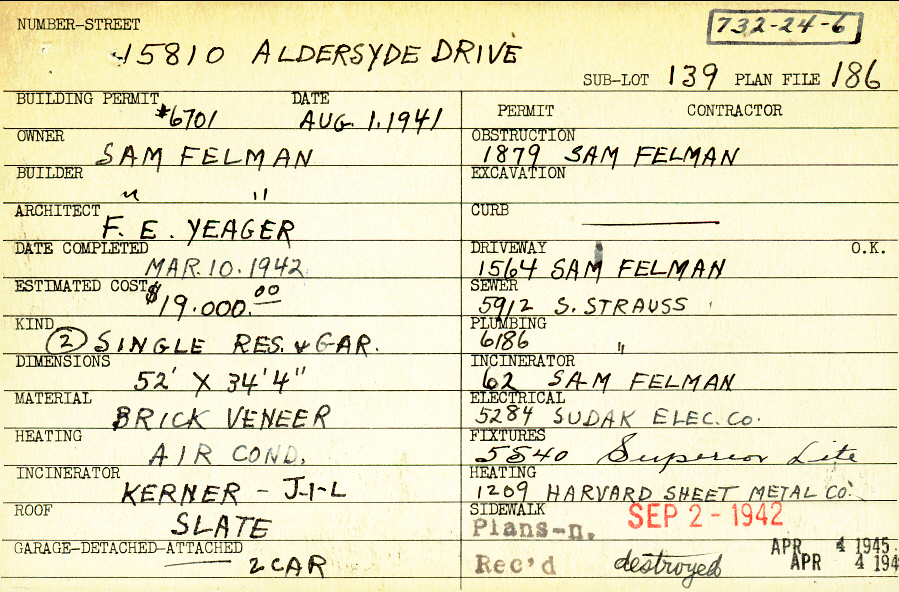 NUMBER-STREET
732-24-6
15810 ALDERSYDE DRIVE
SUB-LOT 139 PLAN FILE 186
BUILDING PERMIT #6701 DATE AUG. 1, 1941
OWNER SAM FELMAN
BUILDER " "
ARCHITECT F. E. YEAGER
DATE COMPLETED MAR. 10. 1942
ESTIMATED COST $19.000.00
KIND (2) SINGLE RES. & GAR.
DIMENSIONS 52' X 34'4"
MATERIAL BRICK VENEER
HEATING AIR COND.
INCINERATOR KERNER - J-1-L
ROOF SLATE
GARAGE-DETACHED-ATTACHED
2 CAR
PERMIT CONTRACTOR
OBSTRUCTION
1879 SAM FELMAN
EXCAVATION
CURB
DRIVEWAY O.K.
1564 SAM FELMAN
SEWER
5912 S. STRAUSS
PLUMBING
6186 "
INCINERATOR
62 SAM FELMAN
ELECTRICAL
5284 SUDAK ELEC. CO.
FIXTURES
5540 Superior Lite
HEATING
1209 HARVARD SHEET METAL CO.
SIDEWALK SEP 2 - 1942
Plans-n.
APR 4 1945
Rec'd destroyed APR 4 194